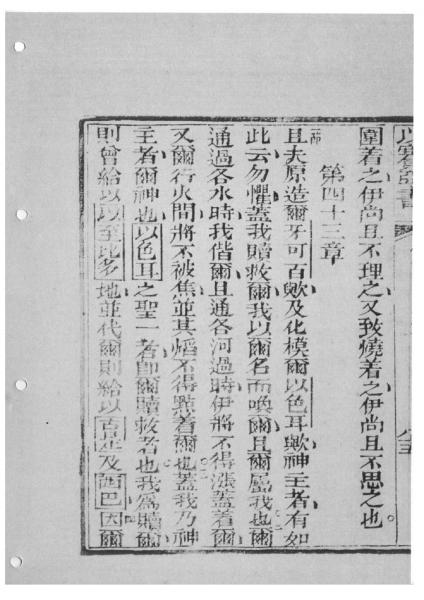 圍着之伊尚且不理之又致燒着之伊尚且不思之也
第四十三章
且夫原造爾牙可百歟及化模爾以色耳歟神主者有如
此云勿懼蓋我贖救爾我以爾名而喚爾且爾屬我也爾
通過各水時我偕爾且通各河過時伊將不得漲蓋着爾
又爾行火間將不被焦並其熖不得㸃着爾也蓋我乃神
主者爾神也以色耳之聖一者即爾贖救者也我為贖爾
則曾給以以至比多地並代爾則給以古是及西巴因爾